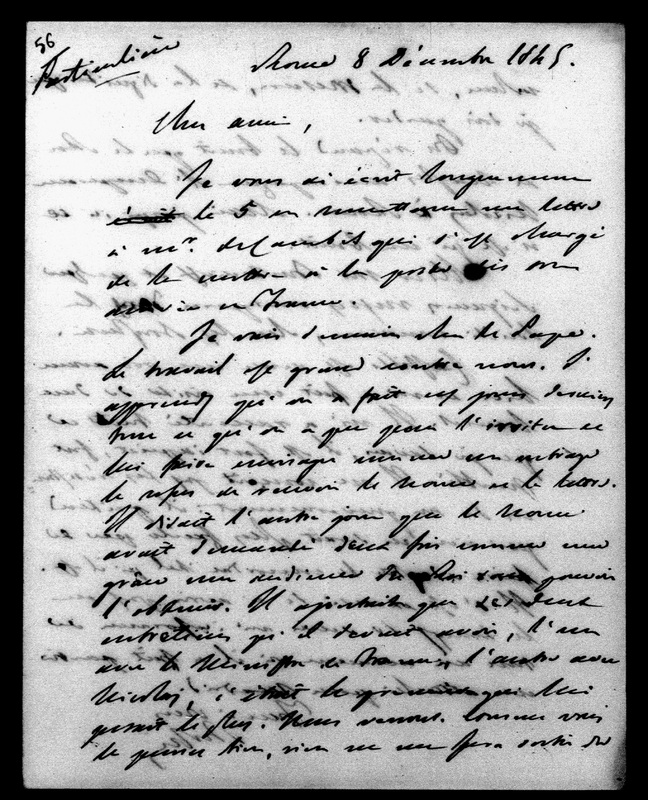 56
Particulière
Rome 8 Décembre 1845.
Cher ami,
Je vous ai écrit longuement
le 5 en remettant une lettre
à Mr. de Cambis qui s'est chargé
de la mettre à la poste dès son
arrivée en France.
Je vais demain chez le Pape.
Le travail est grand contre nous. J'
apprends qu'on a fait ces jours derniers
tout ce qu'on a pu pour l'irriter et
lui faire envisager comme un outrage
le refus de recevoir le Nonce et la lettre.
Il disait l'autre jour que le Nonce
avait demandé deux fois comme une
grâce une audience du Roi sans pouvoir
l'obtenir. Il ajoutait que des deux
entretiens qu'il devait avoir, l'un
avec le Ministre de France, l'autre avec
Nicolas, c'était le premier qui lui
pesait le plus. Nous verrons. Comme vous
le pensez bien, rien ne me fera sortir du